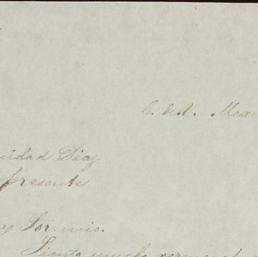 C. de V. Mex
nidad Diaz
presente
y Sor. mio.
Siento mucho